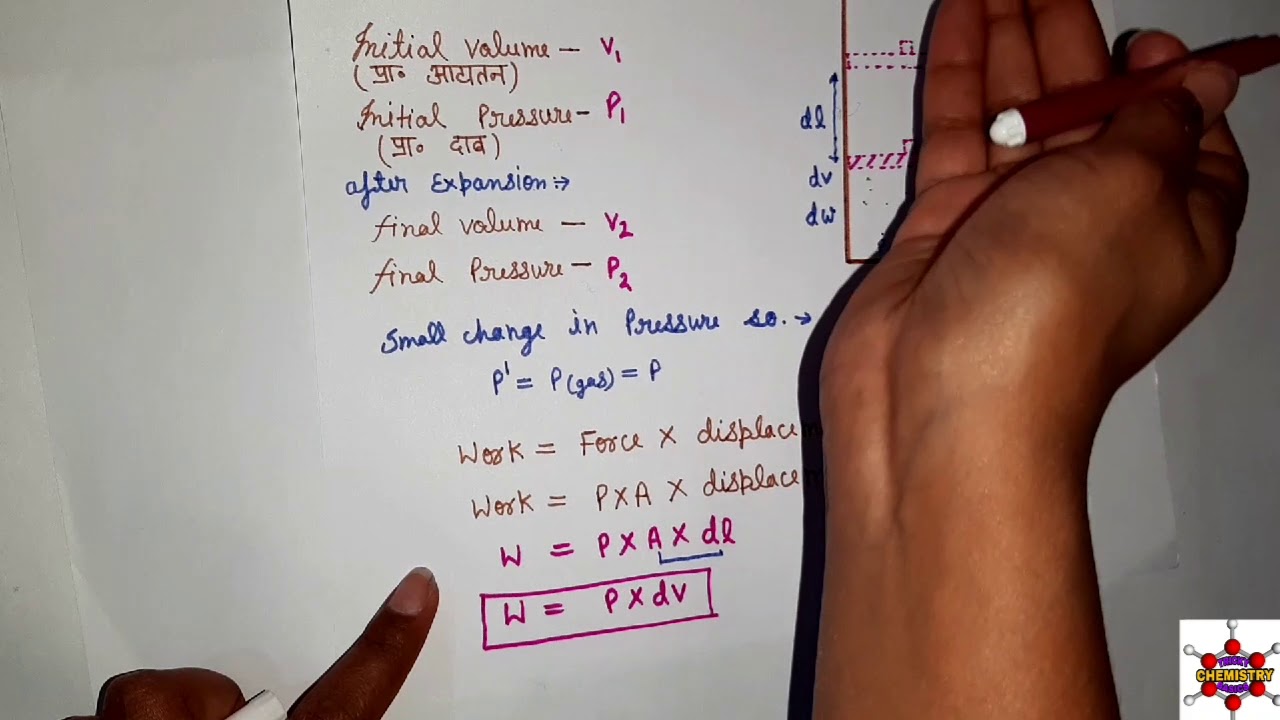 Initial volume - V1
(प्रा० आयतन)
Initial Pressure- P1
(प्रा० दाब)
after Expansion:→
final volume - V2
final Pressure - P2
Small change in Pressure so. →
P' = P(gas) = P
Work = Force X displacem
Work = PXA X displacem
W = PXA X dl
W = PXdV
dl
dv
dw
TRICKY
CHEMISTRY
BASICS